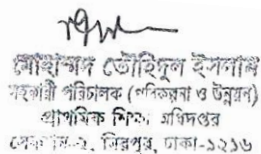 মোহাম্মদ তৌহিদুল ইসলাম
সহকারী পরিচালক (পরিকল্পনা ও উন্নয়ন)
প্রাথমিক শিক্ষা অধিদপ্তর
সেকশন-২, মিরপুর, ঢাকা-১২১৬